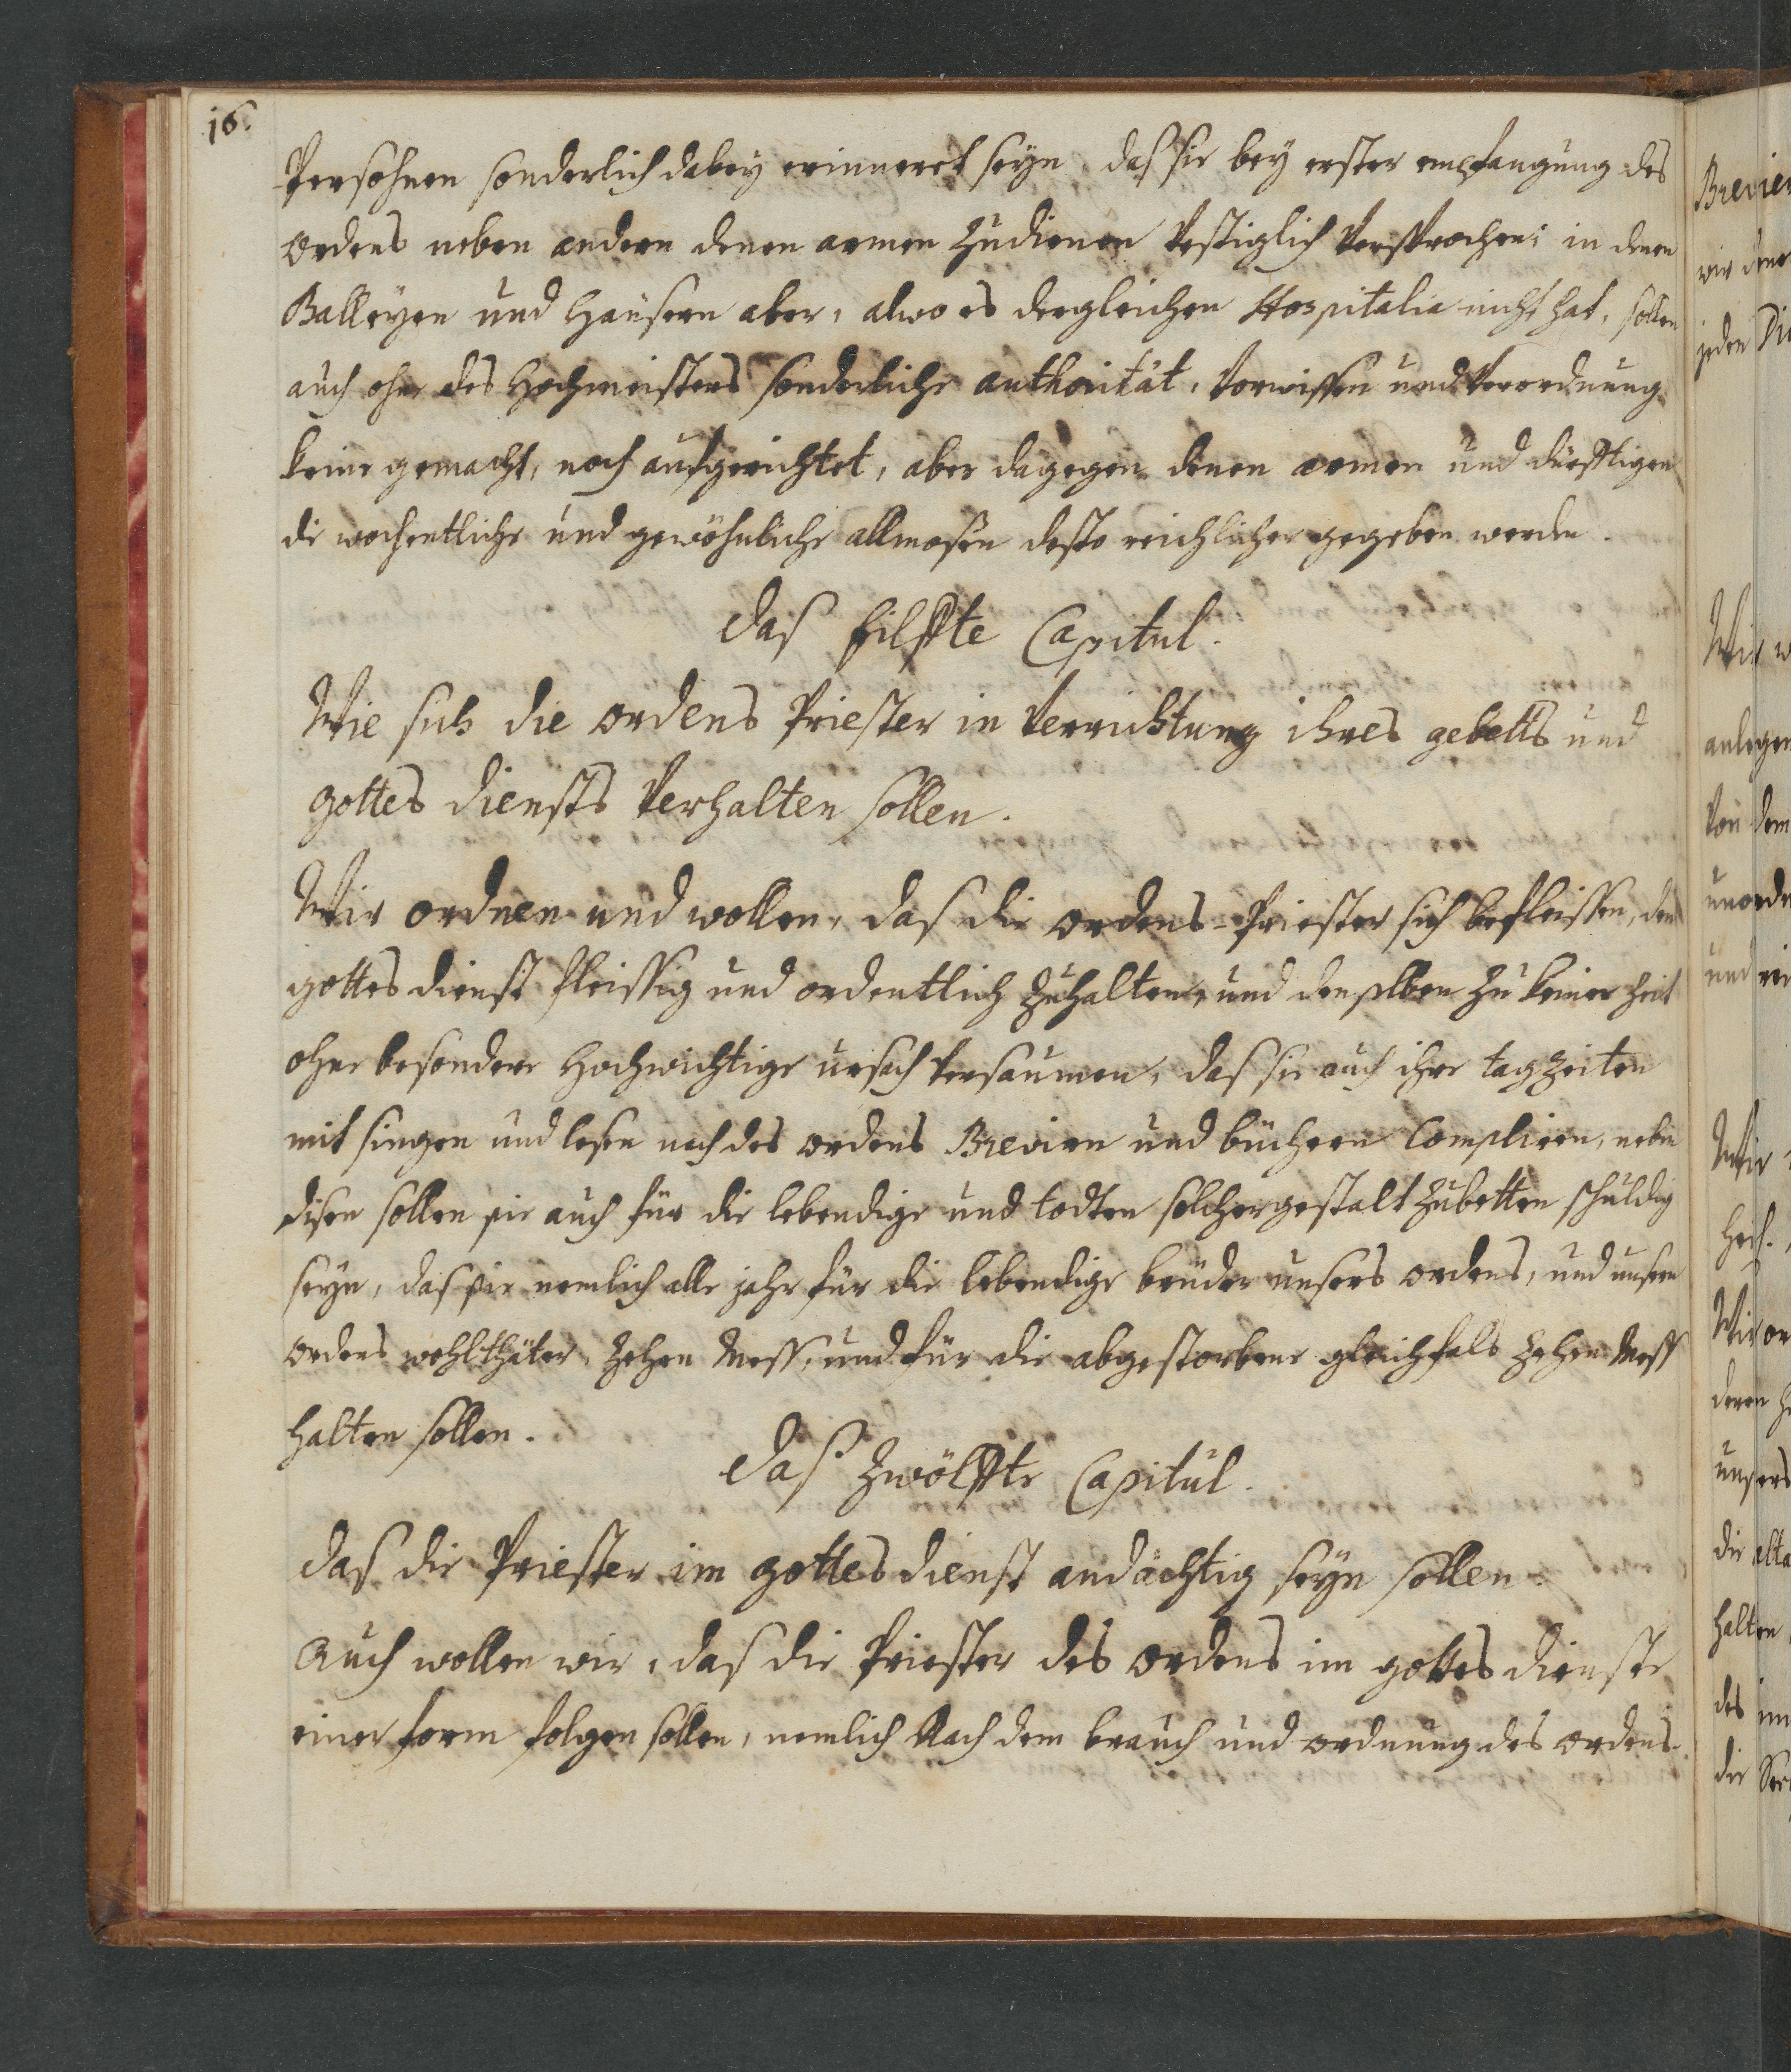 16.
Persohnen sonderlich dabey erinneret seyn, das sie bey erster empfangung des
Ordens neben andern denen armen zudienen Vestiglich Versprochen; in denen
Balleyen und Haüsern aber, alwo es dergleichen Hospitalia nicht hat, sollen
auch ohne des Hochmeisters sonderliche authorität, Vorwissen und Verordnung
keine gemacht, noch aufgerichtet, aber dagegen denen armen und dürfftigen
die wochentliche und gewöhnliche allmosen desto reichlicher gegeben werden.
Das Eilffte Capitul.
Wie sich die ordens Priester in Verrichtung ihres gebetts und
gottes diensts Verhalten sollen.
Wir ordnen und wollen, das die ordens-Priester sich befleissen, den
gottes dienst fleissig und ordentlich zuhalten, und denselben zu keiner Zeit
ohne besondere Hochwichtige ursach Versaumen, das sie auch ihre tagzeiten
mit singen und lesen nach des ordens Brevirn und büchern Complieren, neben
disen sollen sie auch für die lebendige und todten solchergestalt zubetten schuldig
seyn, das sie nemlich alle jahr für die lebendige brüder unsers ordens, und unsern
ordens wohlthäter, zehen Mess, und für die abgestorbene gleichfals zehen Mess
halten sollen.
Das Zwölffte Capitul.
Das die Priester im gottes dienst andächtig seyn sollen.
Auch wollen wir, das die Priester des Ordens im gottes dienste
einer form folgen sollen, nemlich Nach dem brauch und ordnung des ordens
Brevier
wir
jeden
Wir
anlegen
Von dem
und
Wir
Wir
deren
unsers
die
halten
des im
die